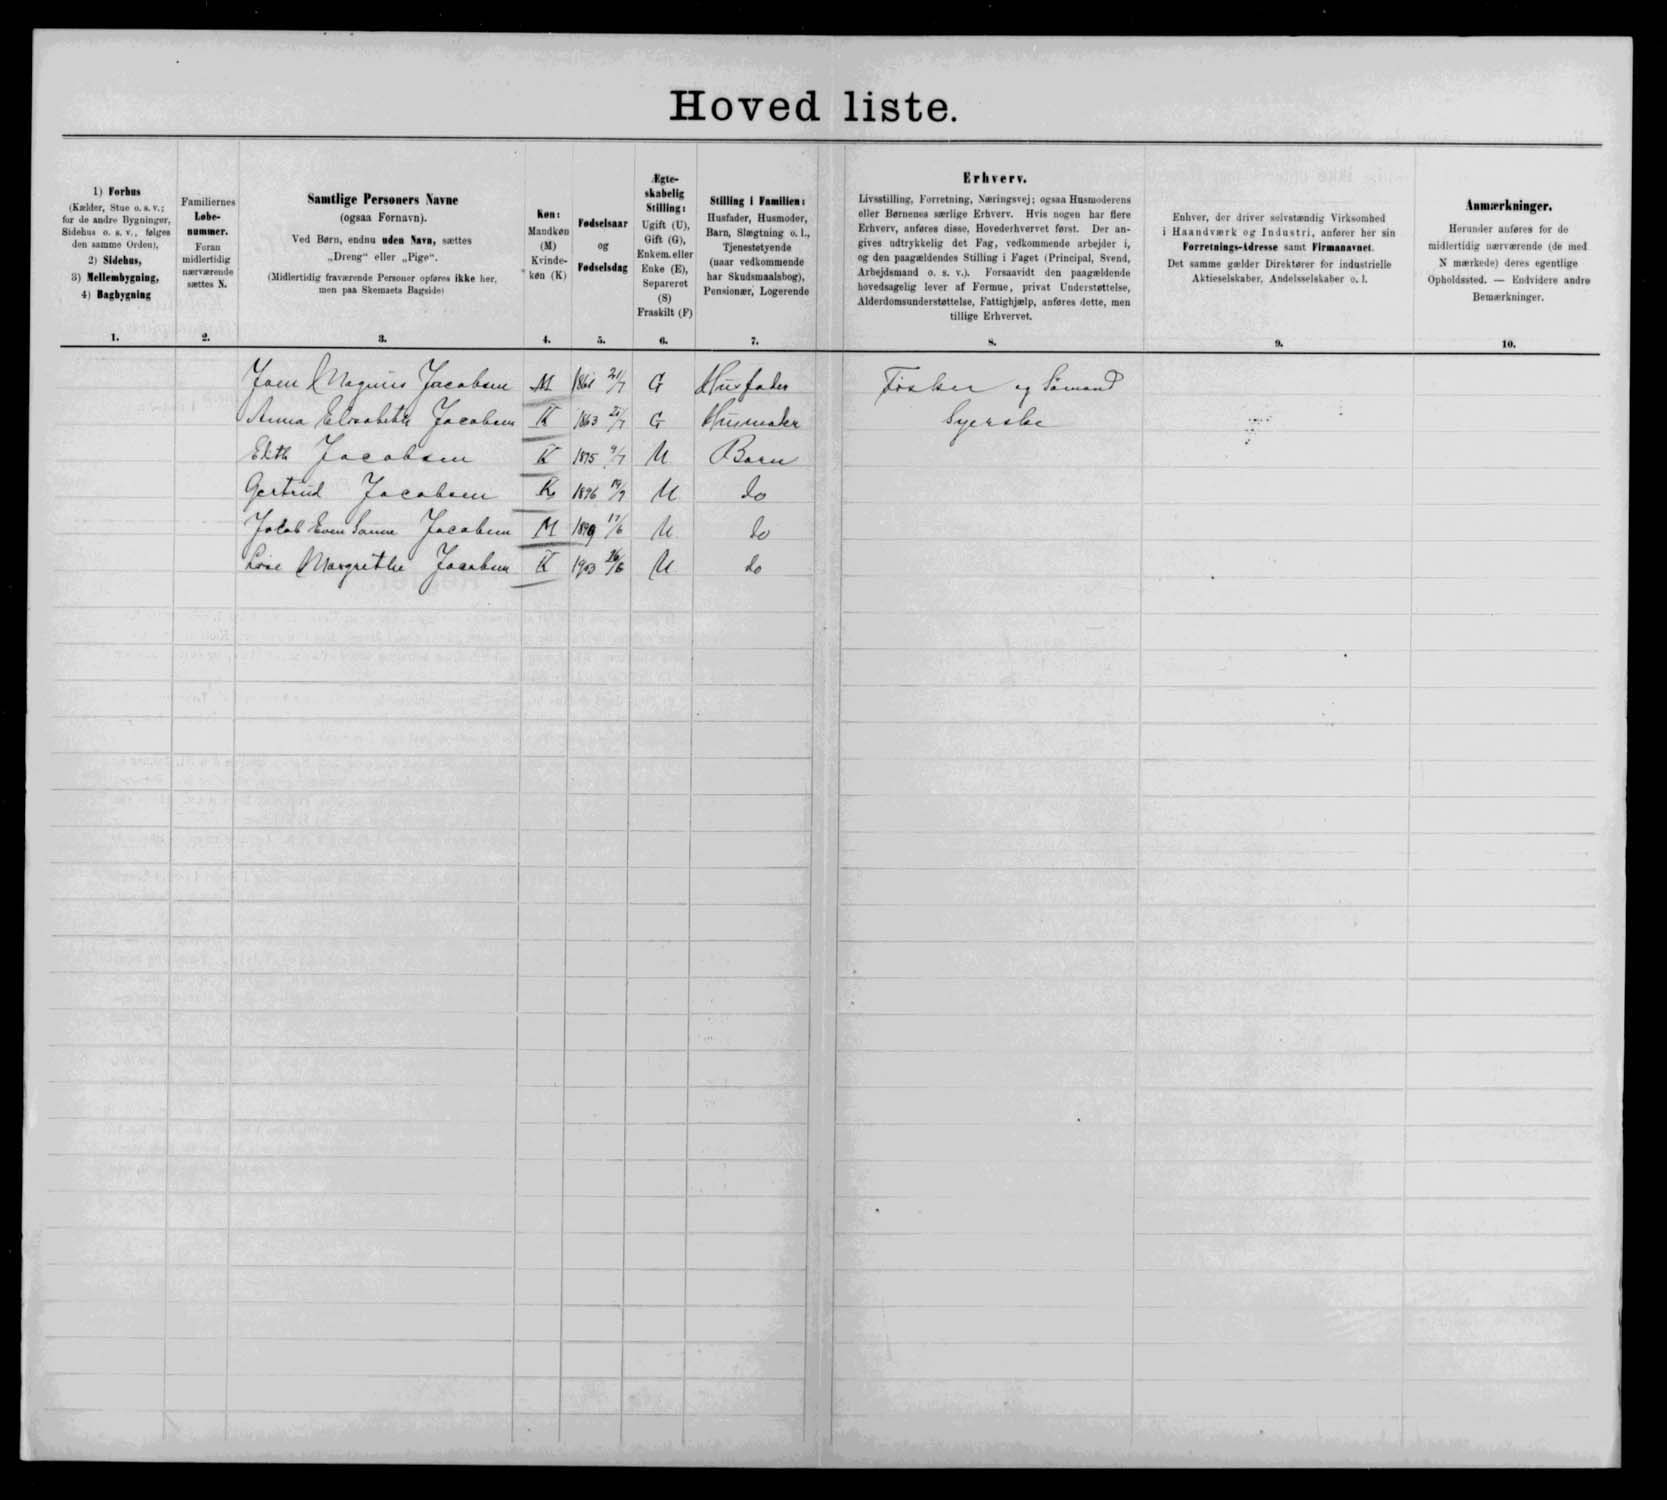 Hoved liste.
1) Forhus
(Kælder, Stue o. s. v.;
for de andre Bygninger,
Sidehus o. s. v., følges
den samme Orden),
2) Sidehus,
3) Mellembygning,
4) Bagbygning
1.
Familiernes
Løbe-
nummer.
Foran
midlertidig
nærværende
sættes N.
2.
Samtlige Personers Navne
(ogsaa Fornavn).
Ved Børn, endnu uden Navn, sættes
„Dreng“ eller „Pige“.
(Midlertidig fraværende Personer opføres ikke her,
men paa Skemaets Bagside)
3.
Køn:
Mandkøn
(M)
Kvinde-
køn (K)
4.
Fødselsaar
og
Fødselsdag
5.
Ægte-
skabelig
Stilling:
Ugift (U),
Gift (G),
Enkem. eller
Enke (E),
Separeret
(S)
Fraskilt (F)
6.
Stilling i Familien:
Husfader, Husmoder,
Barn, Slægtning o. l.,
Tjenestetyende
(naar vedkommende
har Skudsmaalsbog),
Pensionær, Logerende
7.
Erhverv.
Livsstilling, Forretning, Næringsvej; ogsaa Husmoderens
eller Børnenes særlige Erhverv. Hvis nogen har flere
Erhverv, anføres disse, Hovederhvervet først. Der an-
gives udtrykkelig det Fag, vedkommende arbejder i,
og den paagældendes Stilling i Faget (Principal, Svend,
Arbejdsmand o. s. v.). Forsaavidt den paagældende
hovedsagelig lever af Formue, privat Understøttelse,
Alderdomsunderstøttelse, Fattighjælp, anføres dette, men
tillige Erhvervet.
8.
Enhver, der driver selvstændig Virksomhed
i Haandværk og Industri, anfører her sin
Forretnings-Adresse samt Firmanavnet.
Det samme gælder Direktører for industrielle
Aktieselskaber, Andelsselskaber o. l.
9.
Anmærkninger.
Herunder anføres for de
midlertidig nærværende (de med
N mærkede) deres egentlige
Opholdssted. — Endvidere andre
Bemærkninger.
10.
Magnus Jacobsen M 21/7 G Husfader Fisker og Sømand
Anna Elisabeth Jacobsen K 1863 G Husmoder Syerske
Edith Jacobsen K U Barn
Gertrud Jacobsen K 1896 19/9 U do
Jacob Even Jacobsen M 1899 17/6 U do
Margrethe Jacobsen K 1903 26/6 U do